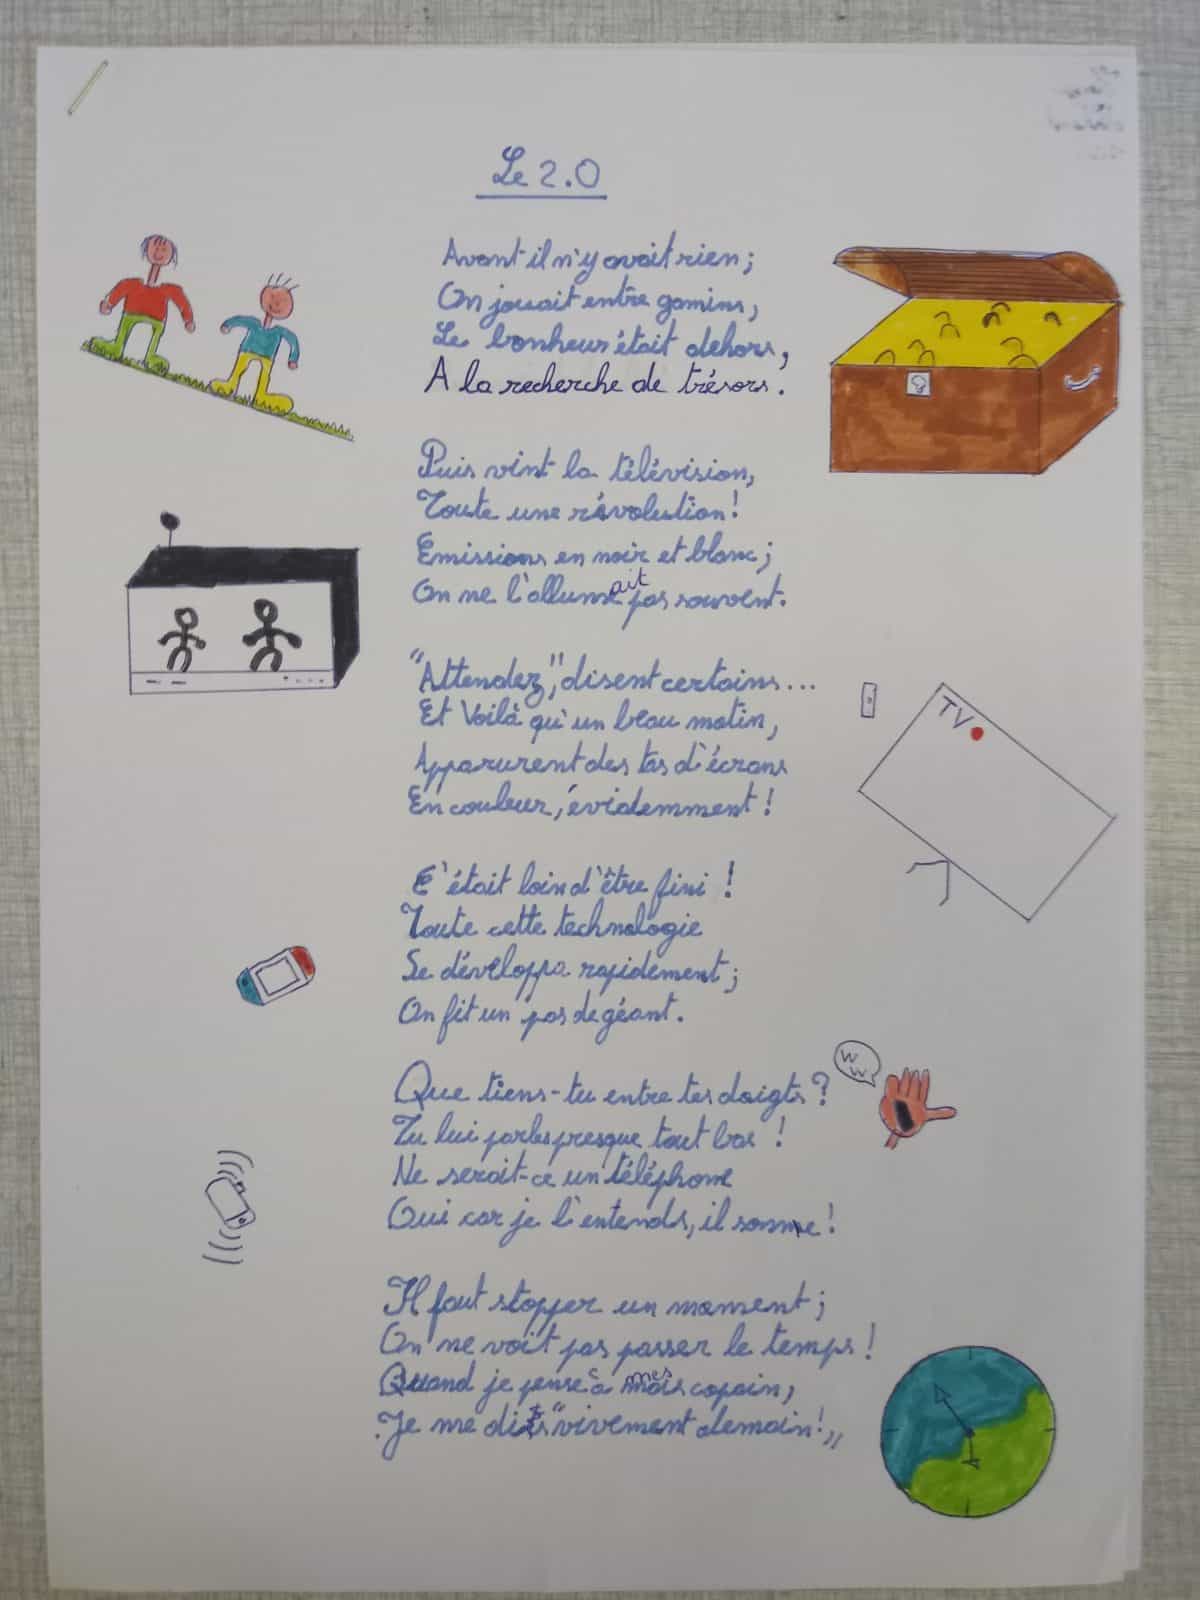 Le 2.0
Avant il n'y avait rien ;
On jouait entre gamins,
Le bonheur était dehors,
A la recherche de trésors.
Puis vint la télévision,
Toute une révolution !
Emissions en noir et blanc ;
On ne l'allumait pas souvent.
"Attendez", disent certains...
Et Voilà qu'un beau matin,
Apparurent des tas d'écrans
En couleur, évidemment !
TV
C'était loin d'être fini !
Toute cette technologie
Se développa rapidement ;
On fit un pas de géant.
W W
Que tiens-tu entre tes doigts ?
Tu lui parles presque tout bas !
Ne serait-ce un téléphone
Oui car je l'entends, il sonne !
Il faut stopper un moment ;
On ne voit pas passer le temps !
Quand je pense à mes copain,
Je me dis "vivement demain !"